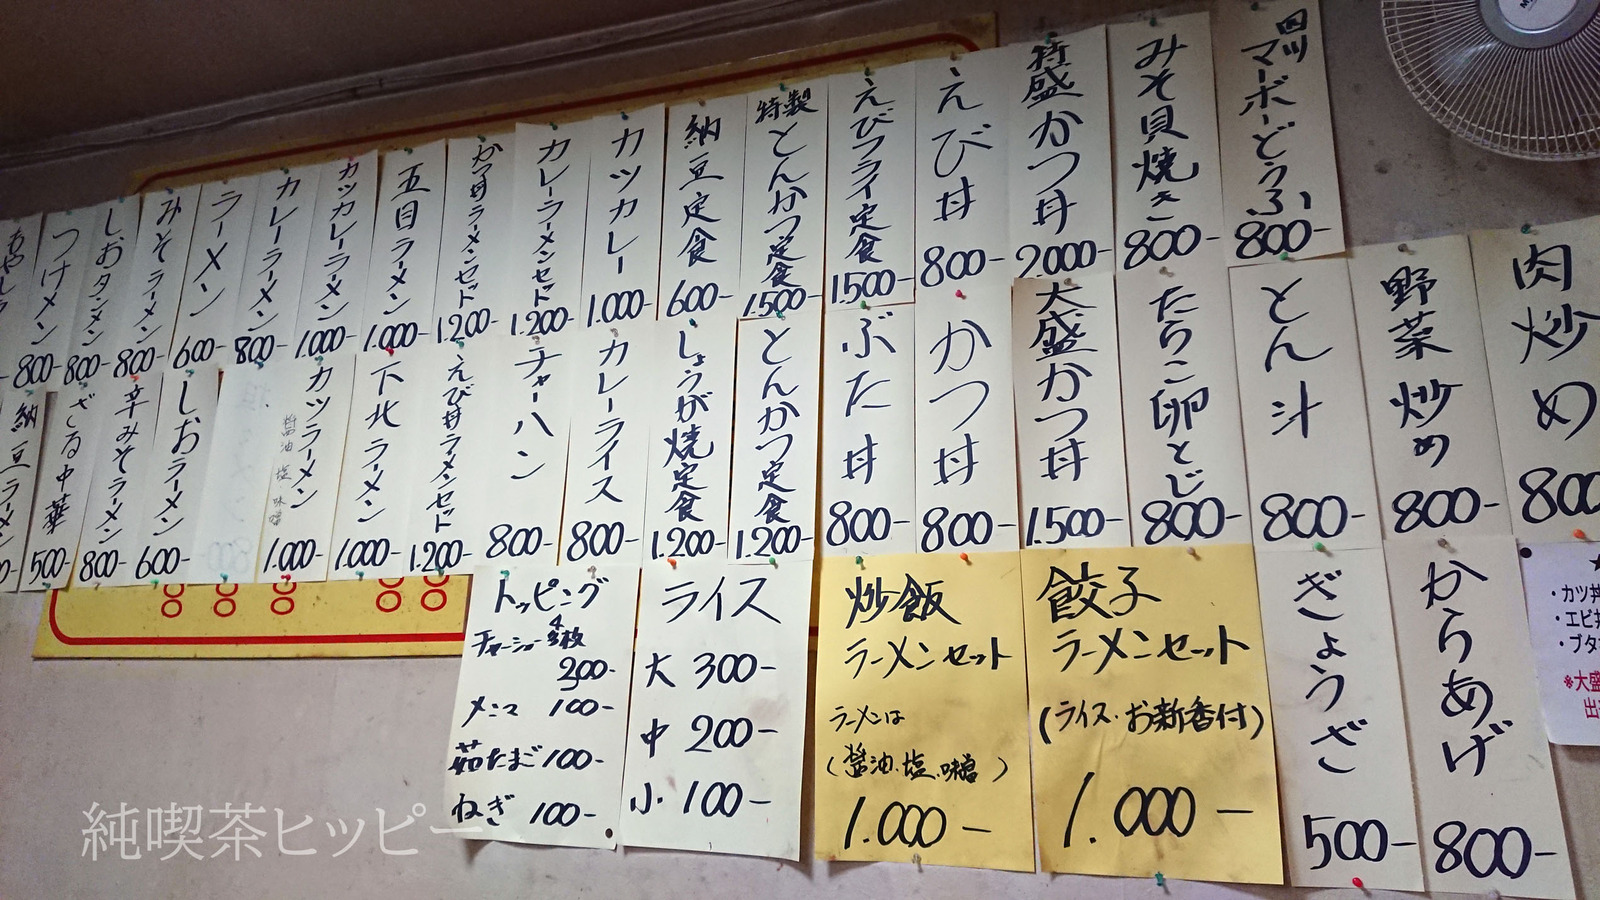 四川マーボーどうふ 800-
みそ貝焼き 800-
特盛かつ丼 2.000-
えび丼 800-
えびフライ定食 1.500-
特製とんかつ定食 1.500-
納豆定食 600-
カツカレー 1.000-
カレーラーメンセット 1.200-
かつ丼ラーメンセット 1.200-
五目ラーメン 1.000-
カツカレーラーメン 1.000-
カレーラーメン 800-
ラーメン 600-
みそラーメン 800-
しおタンメン 800-
つけメン 800-
肉炒め 800
野菜炒め 800-
とん汁 800-
たらこ卵とじ 800-
大盛かつ丼 1.500-
かつ丼 800-
ぶた丼 800-
とんかつ定食 1.200-
しょうが焼定食 1.200-
カレーライス 800-
チャーハン 800-
えび丼ラーメンセット 1.200-
下北ラーメン 1.000-
カツラーメン
醤油 塩 味噌
1.000-
しおラーメン 600-
辛みそラーメン 800-
ざる中華 500-
納豆ラーメン
からあげ 800-
ぎょうざ 500-
餃子
ラーメンセット
(ライス・お新香付)
1.000-
炒飯
ラーメンセット
ラーメンは
(醤油.塩.味噌)
1.000-
ライス
大 300-
中 200-
小 100-
トッピング
チャーシュー 4枚
300-
メンマ 100-
茹たまご 100-
ねぎ 100-
・カツ丼
・エビ丼
・ブタ
※大盛
出
純喫茶ヒッピー